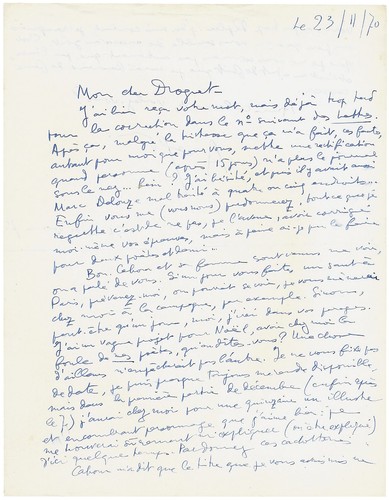 Le 23/11/70
Mon cher Droguet
J'ai bien reçu votre mot, mais déjà trop tard
pour la correction dans le n° suivant des Lettres.
Après ça, malgré la tristesse que ça m'a fait, ces fautes,
autant pour moi que pour vous, mettre une rectification,
quand personne (après 15 jours) n'a plus le journal
sous le nez... hein ? J'ai hésité, et puis il y avait aussi
Marc Delouze mal traité à quatre ou cinq endroits...
Enfin vous me (vous nous) pardonnerez, surtout que je
regrette c'est de ne pas, je l'avoue, avoir corrigé
moi-même vos épreuves, mais à peine ai-je pu le faire
pour deux poètes
Bon. Cahour et sa femme sont venus me voir,
on a parlé de vous. Si un jour vous faites un saut à
Paris, prévenez-moi, on pourrait se voir, je vous
chez moi à la campagne, par exemple. Sinon,
peut-être qu'un jour, moi, j'irai dans vos parages.
J'ai un vague projet pour Noël, avoir chez moi la
foule de ces poètes, qu'en dites-vous ? Une chose
d'ailleurs n'empêchant pas l'autre. Je ne vous fixe pas
de date, je puis presque toujours me rendre disponible,
mais dans la première partie de décembre (enfin après
le 7) j'aurai chez moi pour une quinzaine un illustre
et encombrant personnage que j'aime bien : je
me trouverai sûrement inexplicable (ni être expliqué)
d'ici quelque temps. Pardonnez ces cachotteries.
Cahour m'a dit que ce titre que je vous